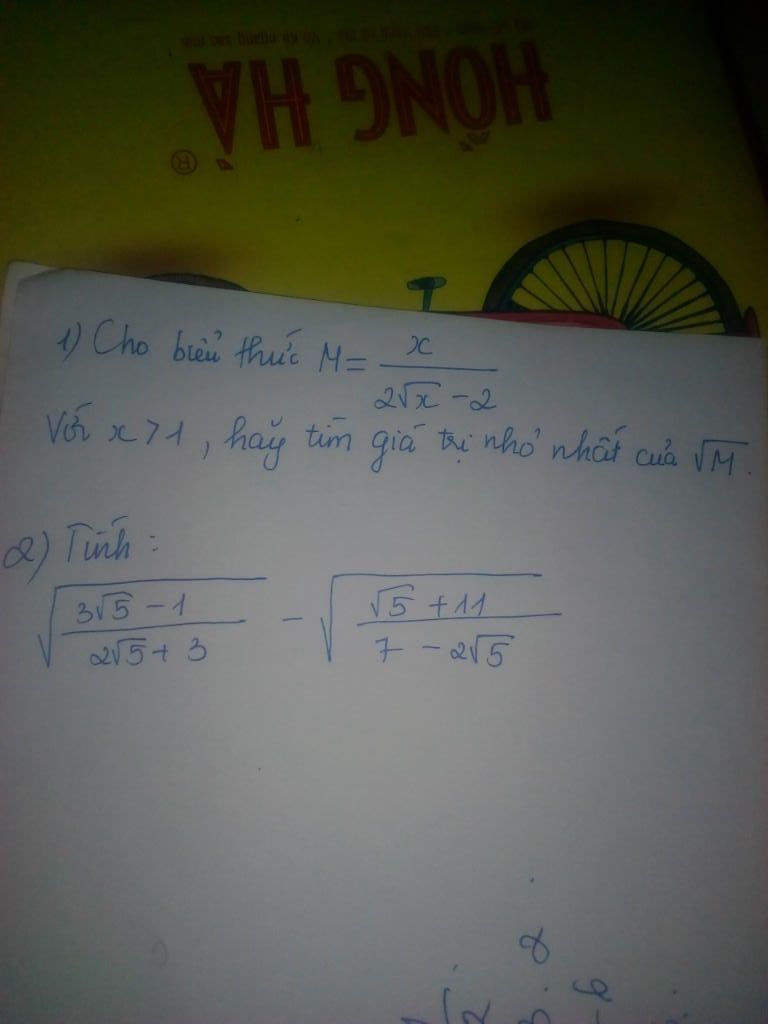 HỒNG HÀ ®
1) Cho biểu thức M = x / (2√x - 2)
Với x > 1, hãy tìm giá trị nhỏ nhất của √M.
2) Tính:
√((3√5 - 1) / (2√5 + 3)) - √((√5 + 11) / (7 - 2√5))